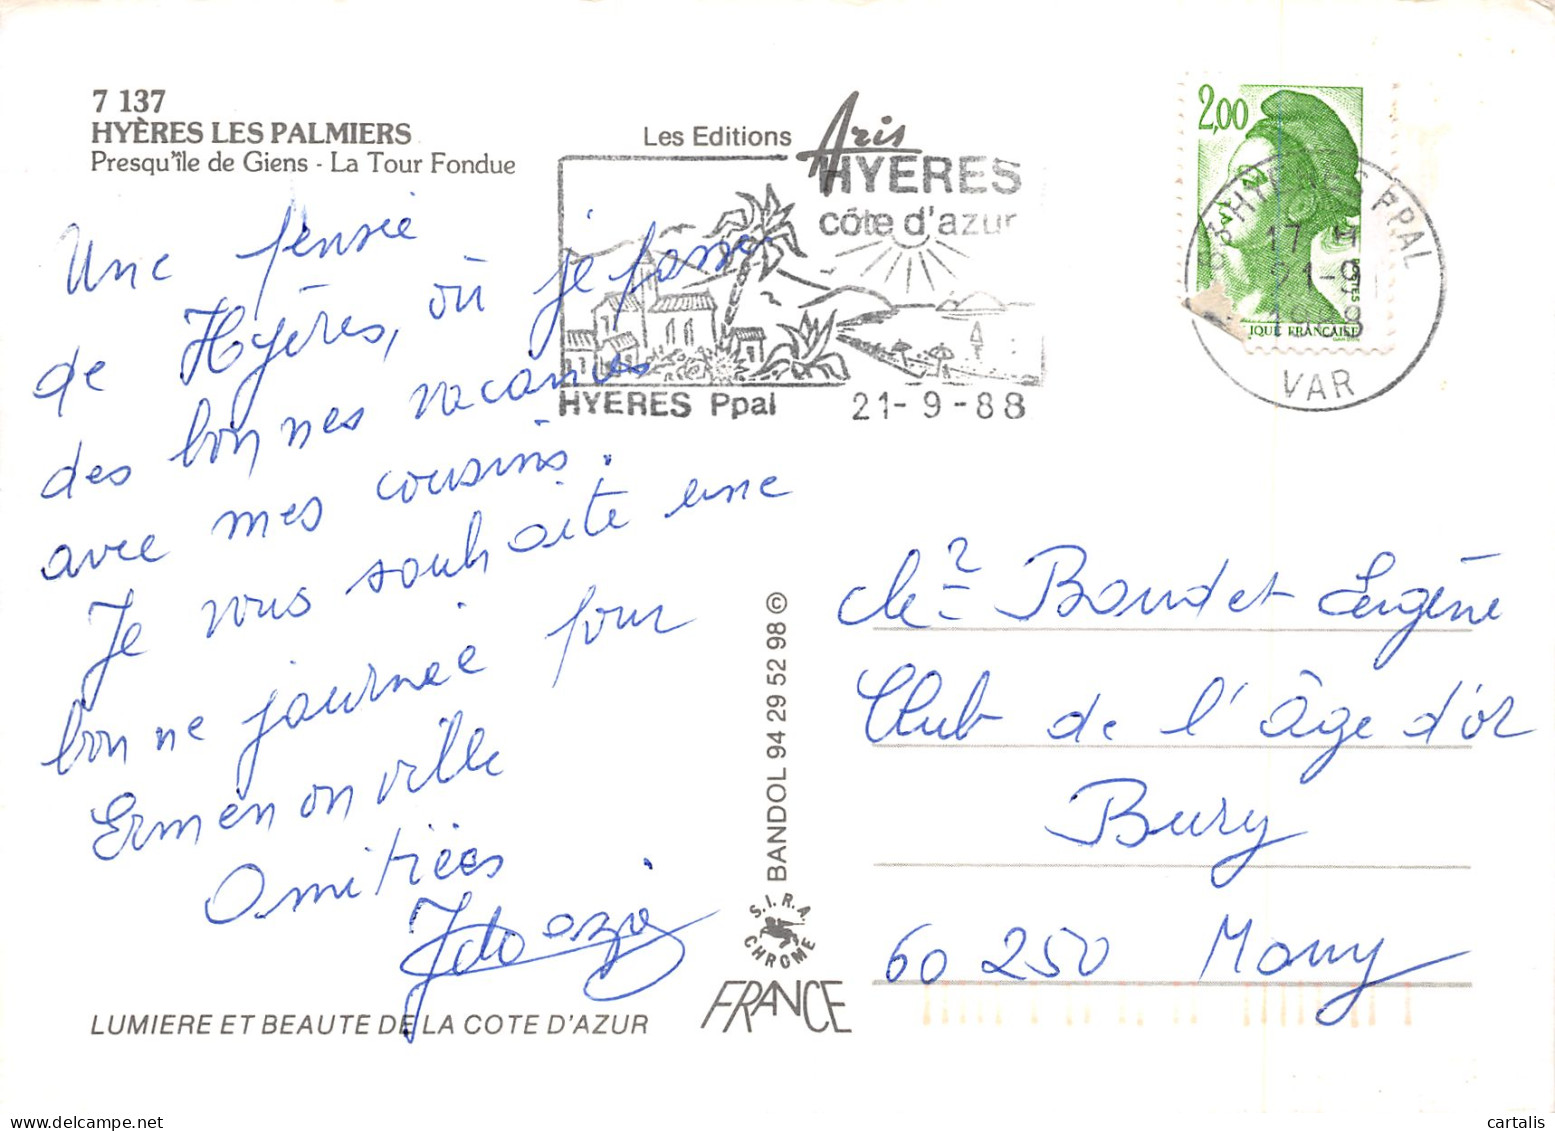 7 137
HYÈRES LES PALMIERS
Presqu'île de Giens - La Tour Fondue
Les Editions Aris
HYERES
côte d'azur
HYERES Ppal 21-9-88
2,00
83 HYERES PPAL
17 H
21-9
1988
VAR
POSTES
IQUE FRANÇAISE
Une pensée
de Hyères, où je passe
des bonnes vacances
avec mes cousins.
Je vous souhaite une
bonne journée pour
Ermenonville
Amitiées
Me Boudet Eugène
Club de l'âge d'or
Bury
60 250 Mouy
BANDOL 94 29 52 98 ©
S.I.R.A.
CHROME
FRANCE
LUMIERE ET BEAUTE DE LA COTE D'AZUR
cartalis